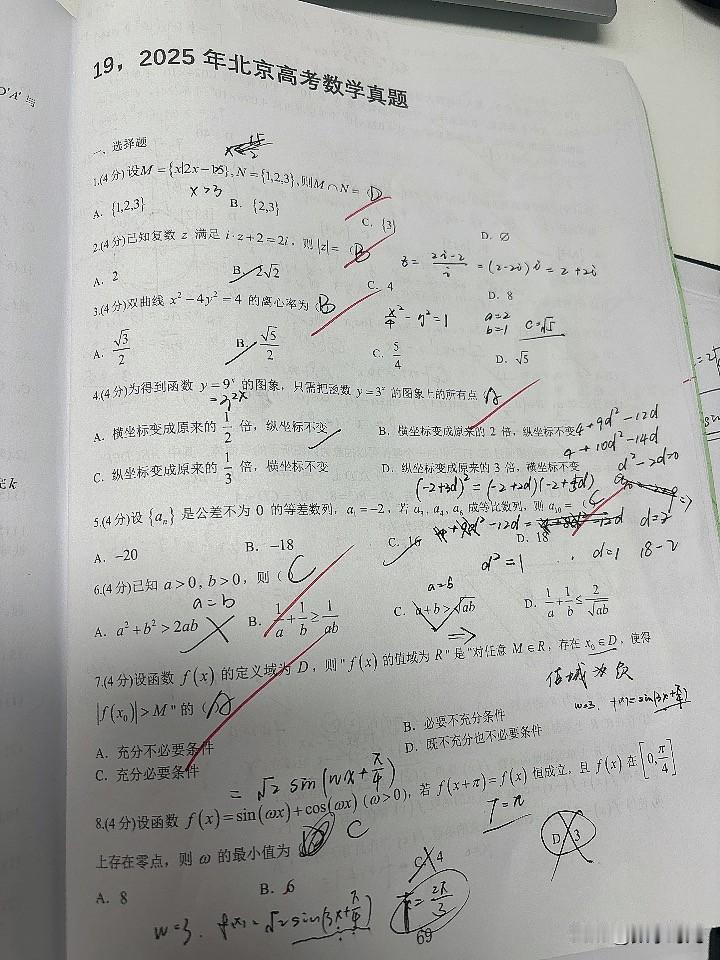 19，2025 年北京高考数学真题
一、选择题
1.(4分)设M = {x|2x−1>5}, N = {1,2,3},则M∩N = (D
x>3
A. {1,2,3}
B. {2,3}
C. {3}
D. ∅
2.(4分)已知复数 z 满足 i·z+2=2i，则|z|= (B
z = (2i-2)/i = (2-2i)i = 2+2i
A. 2
B. 2√2
C. 4
D. 8
3.(4分)双曲线 x²−4y²=4 的离心率为(B
x²/4 - y²=1 a=2 b=1 c=√5
A. √3/2
B. √5/2
C. 5/4
D. √5
4.(4分)为得到函数 y=9ˣ 的图象，只需把函数 y=3ˣ 的图象上的所有点(A
=3²ˣ
A. 横坐标变成原来的 1/2 倍，纵坐标不变
B. 横坐标变成原来的 2 倍，纵坐标不变
4+9d²-12d
4+10d²-14d
C. 纵坐标变成原来的 1/3 倍，横坐标不变
D. 纵坐标变成原来的 3 倍，横坐标不变
d²-2d=0
(-2+3d)²=(-2+2d)(-2+5d)
5.(4分)设{aₙ}是公差不为 0 的等差数列，a₁=−2，若 a₃, a₄, a₆ 成等比数列，则 a₁₀= (C
A. −20
B. −18
C. 16
D. 18
d=2
d²=1 d=1 18-2
6.(4分)已知 a>0, b>0，则 (C
a=b
a=b
A. a²+b²>2ab
B. 1/a+1/b≥1/ab
C. a+b>√ab
D. 1/a+1/b≤2/√ab
⇒
7.(4分)设函数 f(x) 的定义域为 D，则"f(x) 的值域为 R"是"对任意 M∈R，存在 x₀∈D，使得
|f(x₀)|>M"的 (A)
值域为
w=3. f(x)=sin(3x+π/4)
A. 充分不必要条件
B. 必要不充分条件
C. 充分必要条件
D. 既不充分也不必要条件
= √2 sin(wx+π/4)
8.(4分)设函数 f(x)=sin(ωx)+cos(ωx) (ω>0)，若 f(x+π)=f(x) 恒成立，且 f(x) 在[0,π/4]
T=π
上存在零点，则 ω 的最小值为
C
A. 8
B. 6
C. 4
D. 3
w=3. f(x)=√2sin(3x+π/4)
T=2π/3
69